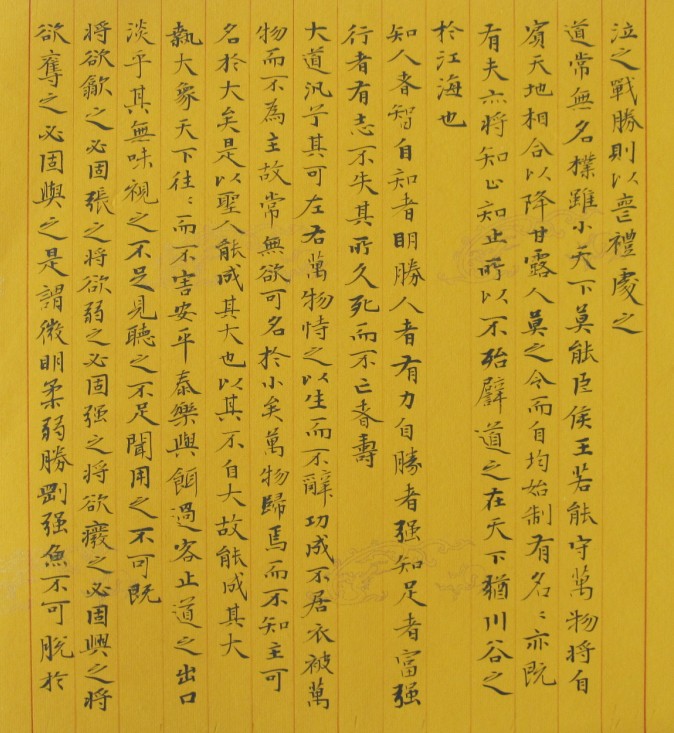 泣之戰勝則以喪禮處之
道常無名樸雖小天下莫能臣侯王若能守萬物將自
賓天地相合以降甘露人莫之令而自均始制有名〻亦既
有夫亦將知止知止所以不殆譬道之在天下猶川谷之
於江海也
知人者智自知者明勝人者有力自勝者强知足者富强
行者有志不失其所久死而不亡者壽
大道汎乎其可左右萬物恃之以生而不辭功成不居衣被萬
物而不為主故常無欲可名於小矣萬物歸焉而不知主可
名於大矣是以聖人能成其大也以其不自大故能成其大
執大象天下往〻而不害安平泰樂與餌過客止道之出口
淡乎其無味視之不足見聽之不足聞用之不可既
將欲歙之必固張之將欲弱之必固强之將欲廢之必固興之將
欲奪之必固與之是謂微明柔弱勝剛强魚不可脫於